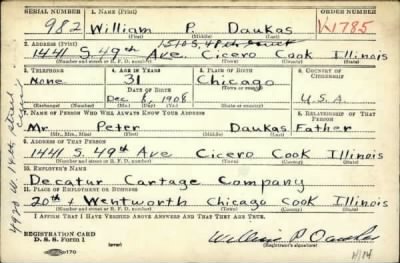 SERIAL NUMBER 1. NAME (Print) ORDER NUMBER
982 William P. Daukas K1785
(First) (Middle) (Last)
2. ADDRESS (Print) 1510 S. 48th Court
1441 S. 49th Ave. Cicero Cook Illinois
(Number and street or R. F. D. number) (Town) (County) (State)
3. TELEPHONE 4. AGE IN YEARS 5. PLACE OF BIRTH 6. COUNTRY OF CITIZENSHIP
None 31 Chicago
DATE OF BIRTH (Town or county)
Dec 6, 1908 U.S.A.
(Exchange) (Number) (Mo.) (Day) (Yr.) (State or country)
7. NAME OF PERSON WHO WILL ALWAYS KNOW YOUR ADDRESS 8. RELATIONSHIP OF THAT PERSON
Mr Peter Daukas Father
(Mr., Mrs., Miss) (First) (Middle) (Last)
9. ADDRESS OF THAT PERSON
1441 S. 49th Ave Cicero Cook Illinois
(Number and street or R. F. D. number) (Town) (County) (State)
10. EMPLOYER'S NAME
Decatur Cartage Company
11. PLACE OF EMPLOYMENT OR BUSINESS
20th & Wentworth Chicago Cook Illinois
(Number and street or R. F. D. number) (Town) (County) (State)
I AFFIRM THAT I HAVE VERIFIED ABOVE ANSWERS AND THAT THEY ARE TRUE.
REGISTRATION CARD
D. S. S. Form 1
(Registrant's signature)
4920 W 14th Street